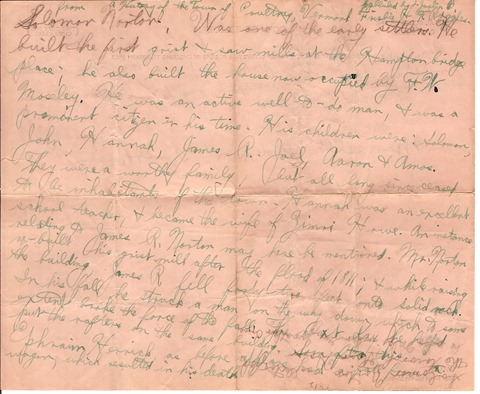 from a History of the Town of Poultney, Vermont
Solomon Norton, Was one of the early settlers. He
built the first grist & saw mills at the Hampton bridge
place; he also built the house now occupied by F. W.
Mosley. He was an active well to-do man, & was a
prominent citizen in his time. His children were: Solomon,
John, Hannah, James R. Joel, Aaron & Amos.
They were a worthy family, but all long since ceased
to be inhabitants of the town. Hannah was an excellent
school teacher, & became the wife of Zimri Howe. An instance
relating to James R. Norton may here be mentioned. Mr. Norton
re-built his grist mill after the flood of 1811, & while raising
the building James R fell feet onto solid rock.
In his fall he struck a man on the way down, which to some
extent broke the force of the fall next day he helped
put the rafters on the same building
Ephraim Herrick as before his
wagon, which resulted in his death